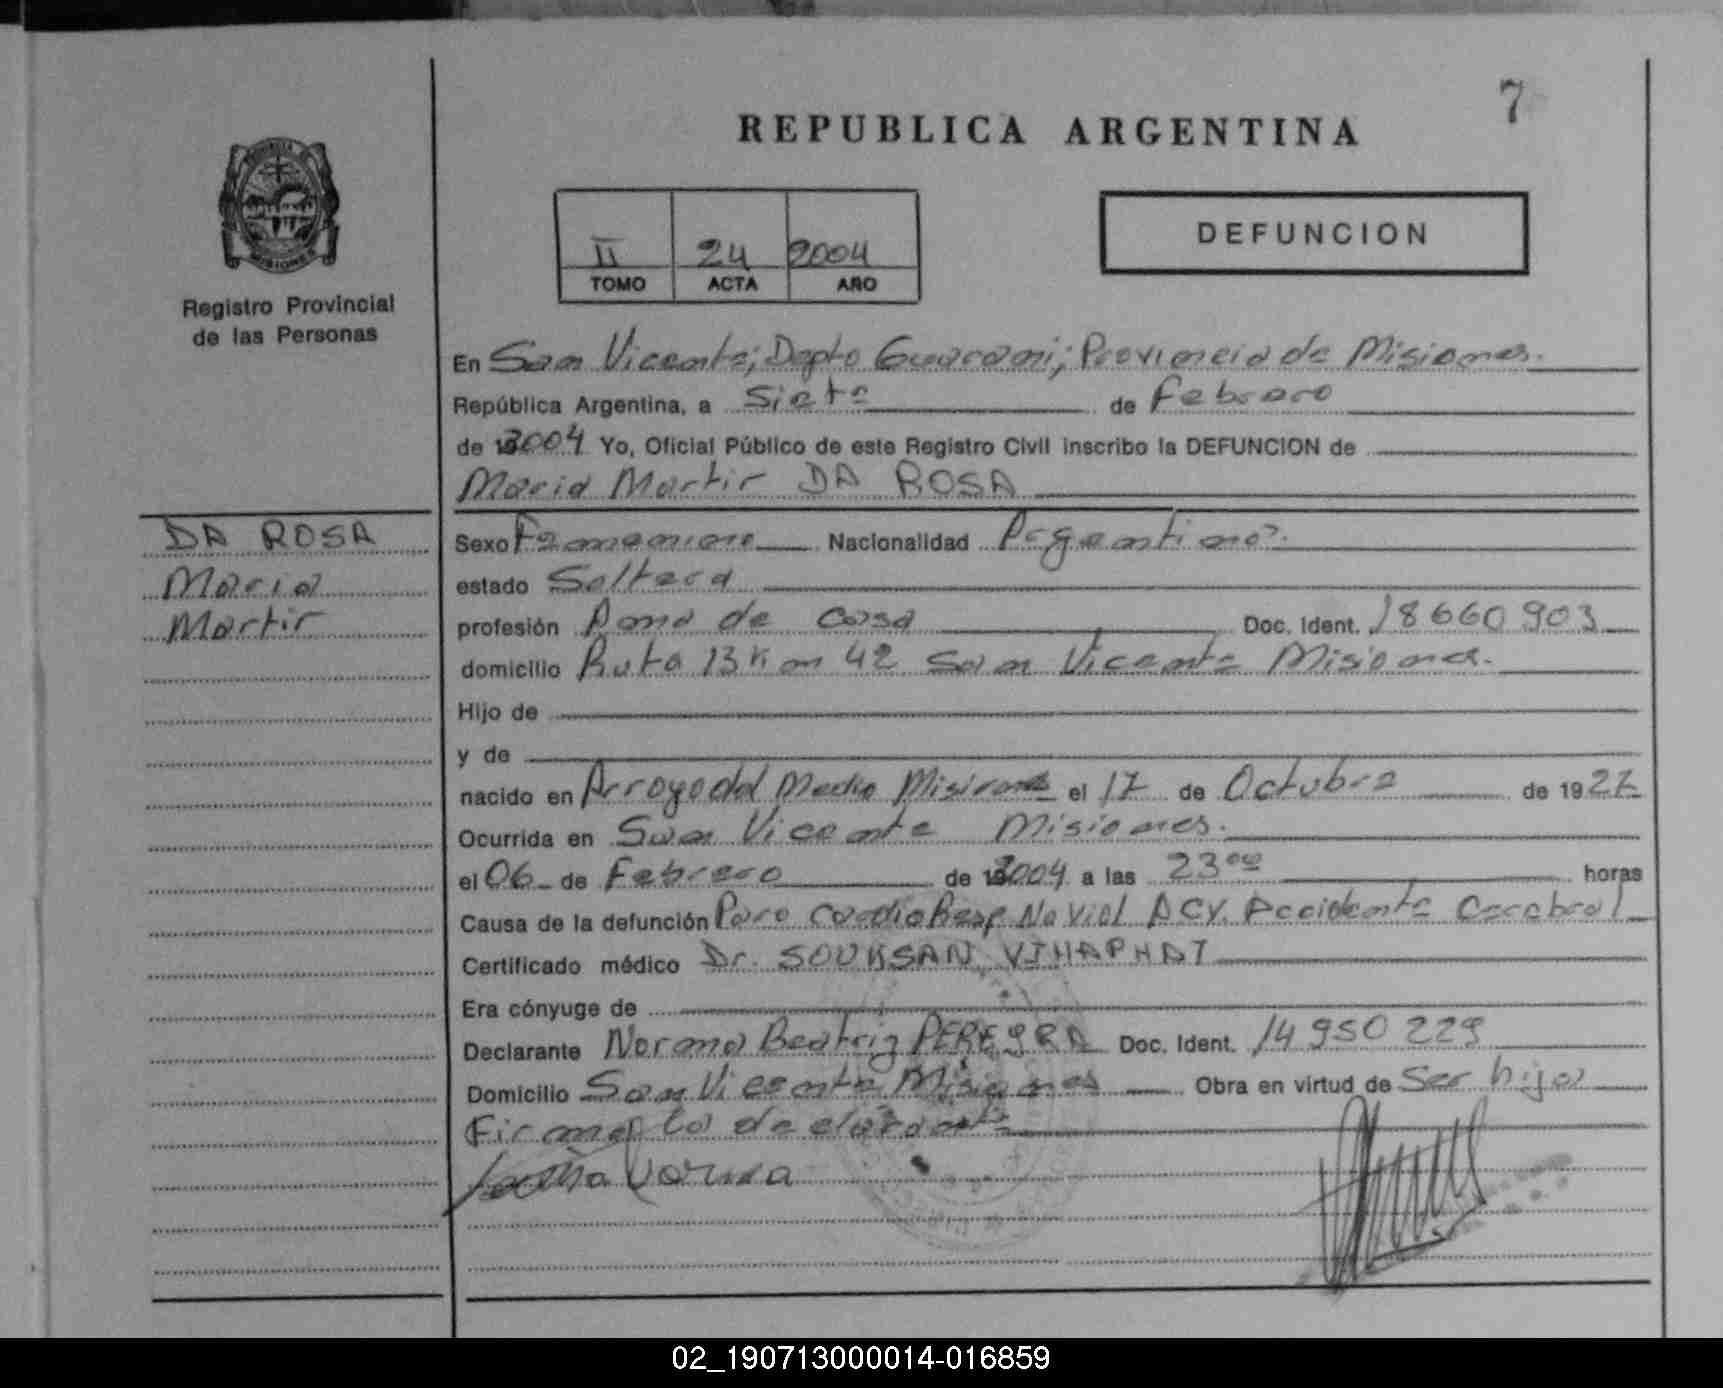 7
REPUBLICA ARGENTINA
II 24 2004
TOMO ACTA AÑO
DEFUNCION
PROVINCIA DE
MISIONES
Registro Provincial
de las Personas
En San Vicente; Dapto Guarani; Provincia de Misiones.
República Argentina, a Siete de Febrero
de 2004 Yo, Oficial Público de este Registro Civil inscribo la DEFUNCION de
Maria Martir DA ROSA
DA ROSA
Maria
Martir
Sexo Femenino Nacionalidad Argentina.
estado Soltera
profesión Ama de Casa Doc. Ident. 18660903
domicilio Ruta 13 Km 42 San Vicente Misiones.
Hijo de
y de
nacido en Arroyo del Medio Misiones el 17 de Octubre de 1927
Ocurrida en San Vicente Misiones.
el 06 de Febrero de 2004 a las 23 00 horas
Causa de la defunción Paro Cardio Resp No Vial ACV. Accidente Cerebral
Certificado médico Dr. SOUKSAN, VIHAPHAT
Era cónyuge de
Declarante Norma Beatriz PEREYRA Doc. Ident. 14950229
Domicilio San Vicente Misiones Obra en virtud de Ser hija
Firma la declarante
Norma
02_190713000014-016859